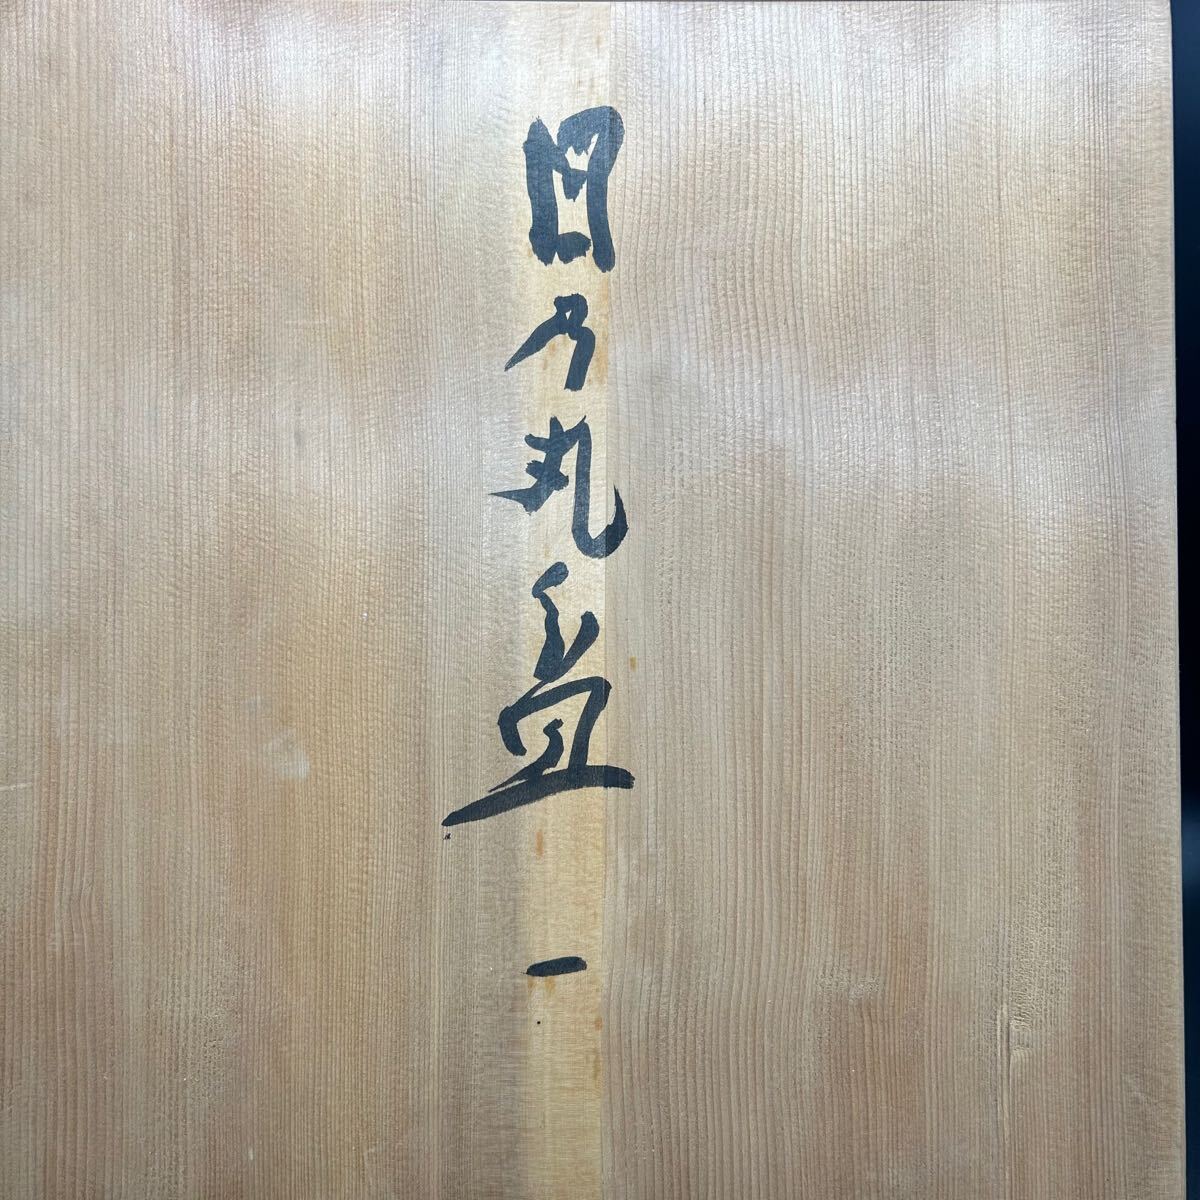 日乃丸盆 一